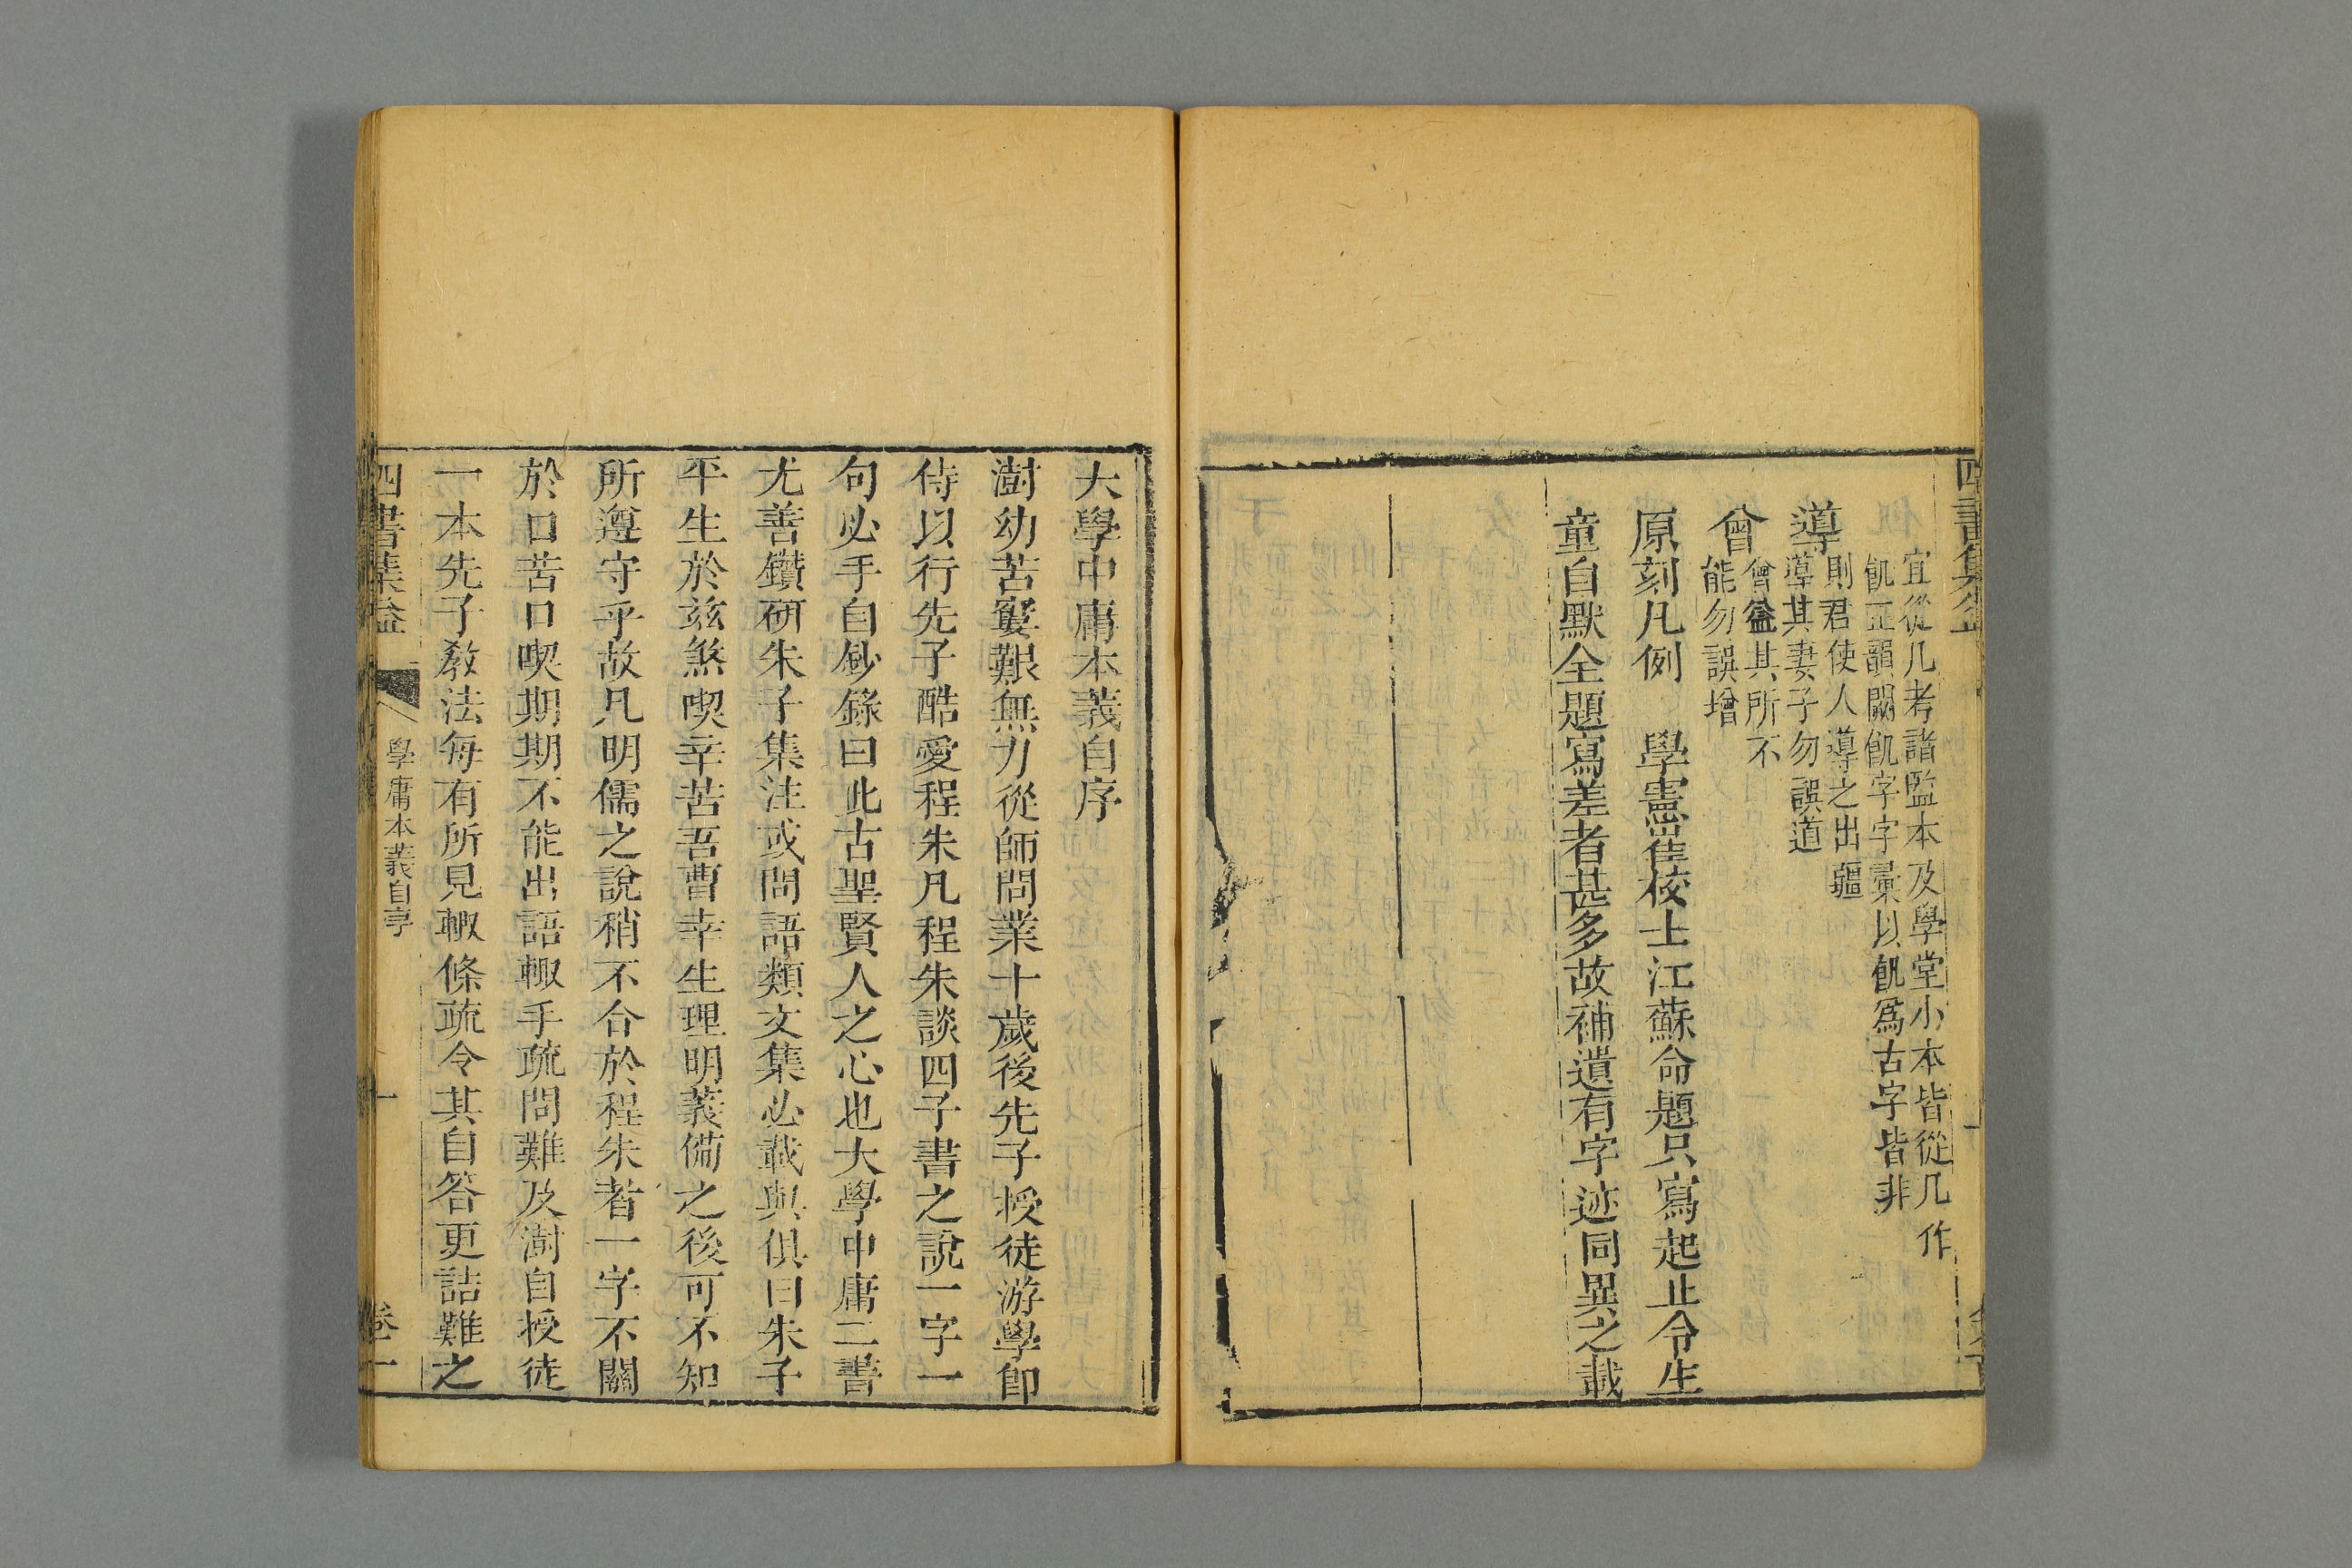 宜從几考諸監本及學堂小本皆從几作
飢正韻闕飢字字彙以飢爲古字皆非
導
則君使人導之出疆
導其妻子勿誤道
曾
曾益其所不
能勿誤增
原刻凡例 學憲崔校士江蘇命題只寫起止令生
童自默全題寫差者甚多故補遺有字迹同異之載
大學中庸本義自序
澍幼苦窶艱無力從師問業十歲後先子授徒游學卽
侍以行先子酷愛程朱凡程朱談四子書之說一字一
句必手自鈔錄曰此古聖賢人之心也大學中庸二書
尤善鑽研朱子集注或問語類文集必載與俱曰朱子
平生於茲煞喫辛苦吾曹幸生理明義備之後可不知
所遵守乎故凡明儒之說稍不合於程朱者一字不關
於口苦口喫期期不能出語輙手疏問難及澍自授徒
一本先子教法每有所見輙條疏令其自答更詰難之
四書集益
學庸本義自序
一
卷一